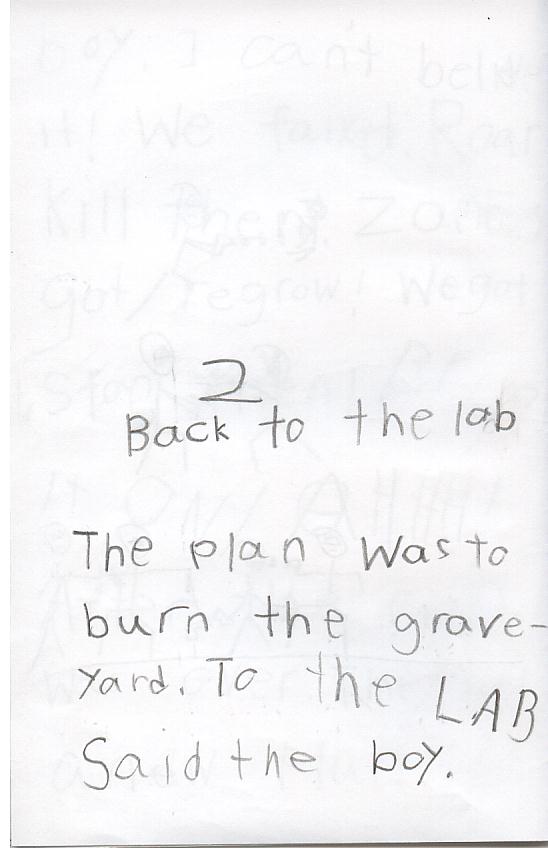 2
Back to the lab
The plan was to
burn the grave-
yard. To the LAB
Said the boy.